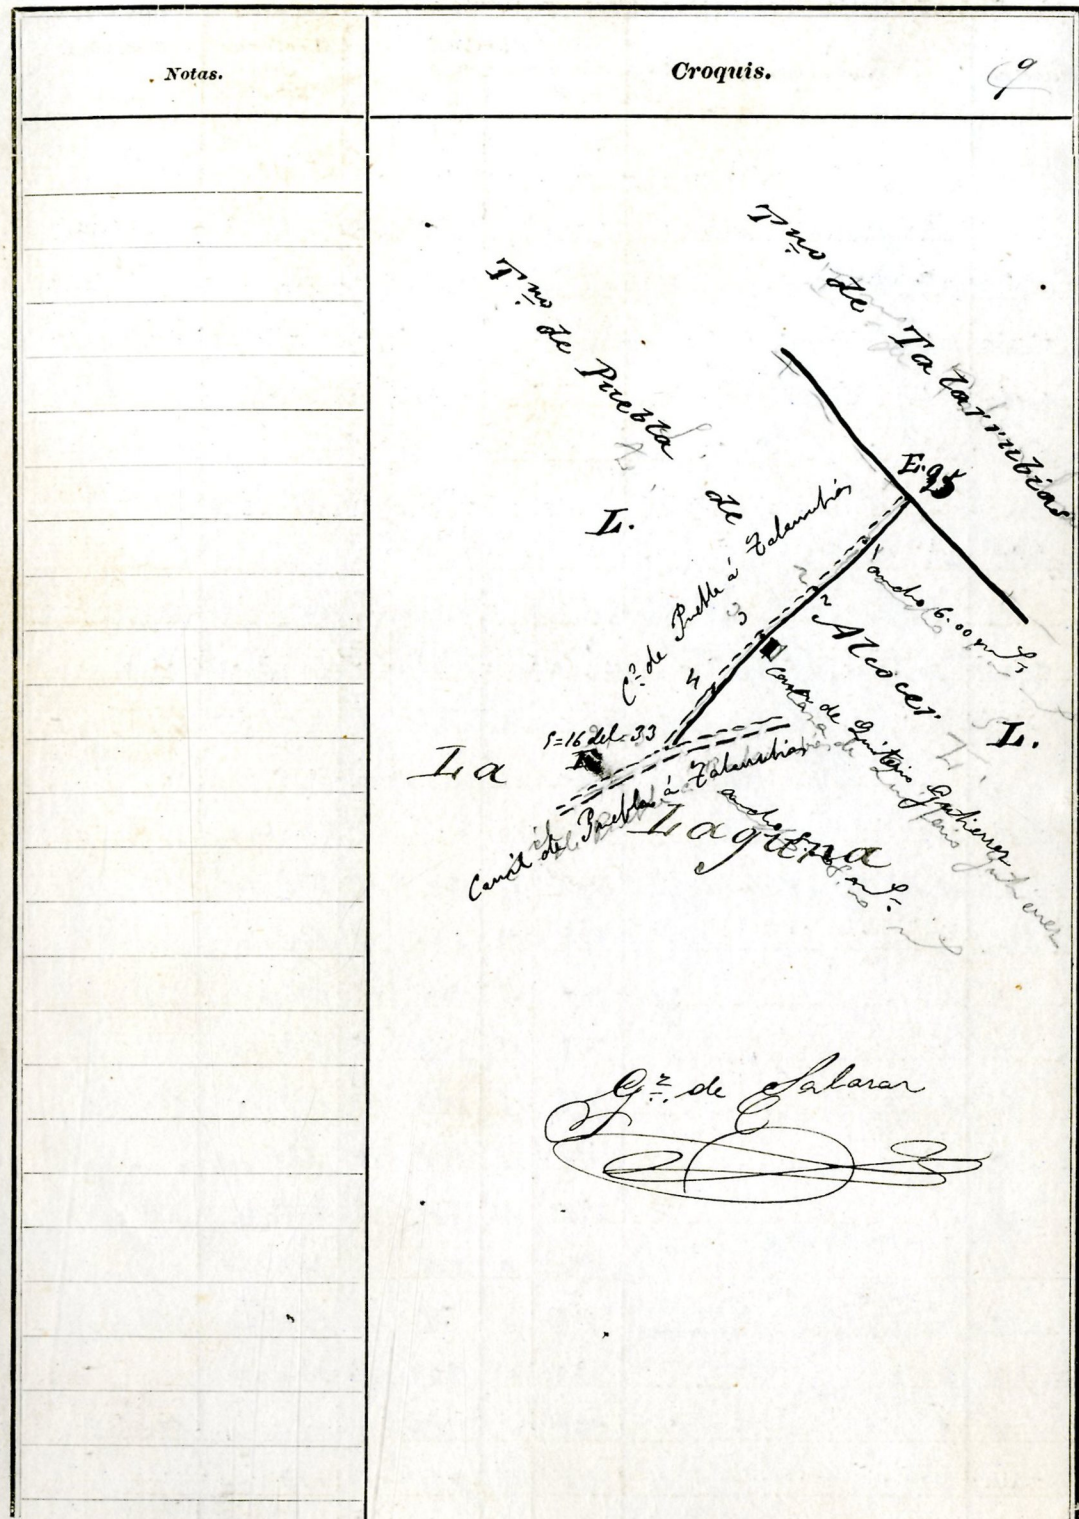 Notas.
Croquis.
9
Tno de Talarrubias
Tno de Puebla de Alcocer
E. 9
L.
Co de Puebla á Talarrubias
ancho 6.00 m
2
3
4
1
Casa de Quiterio Gutierrez
L.
1=16 del=33
La Laguna
Carril de Puebla á Talarrubias
ancho
Gz. de Salazar